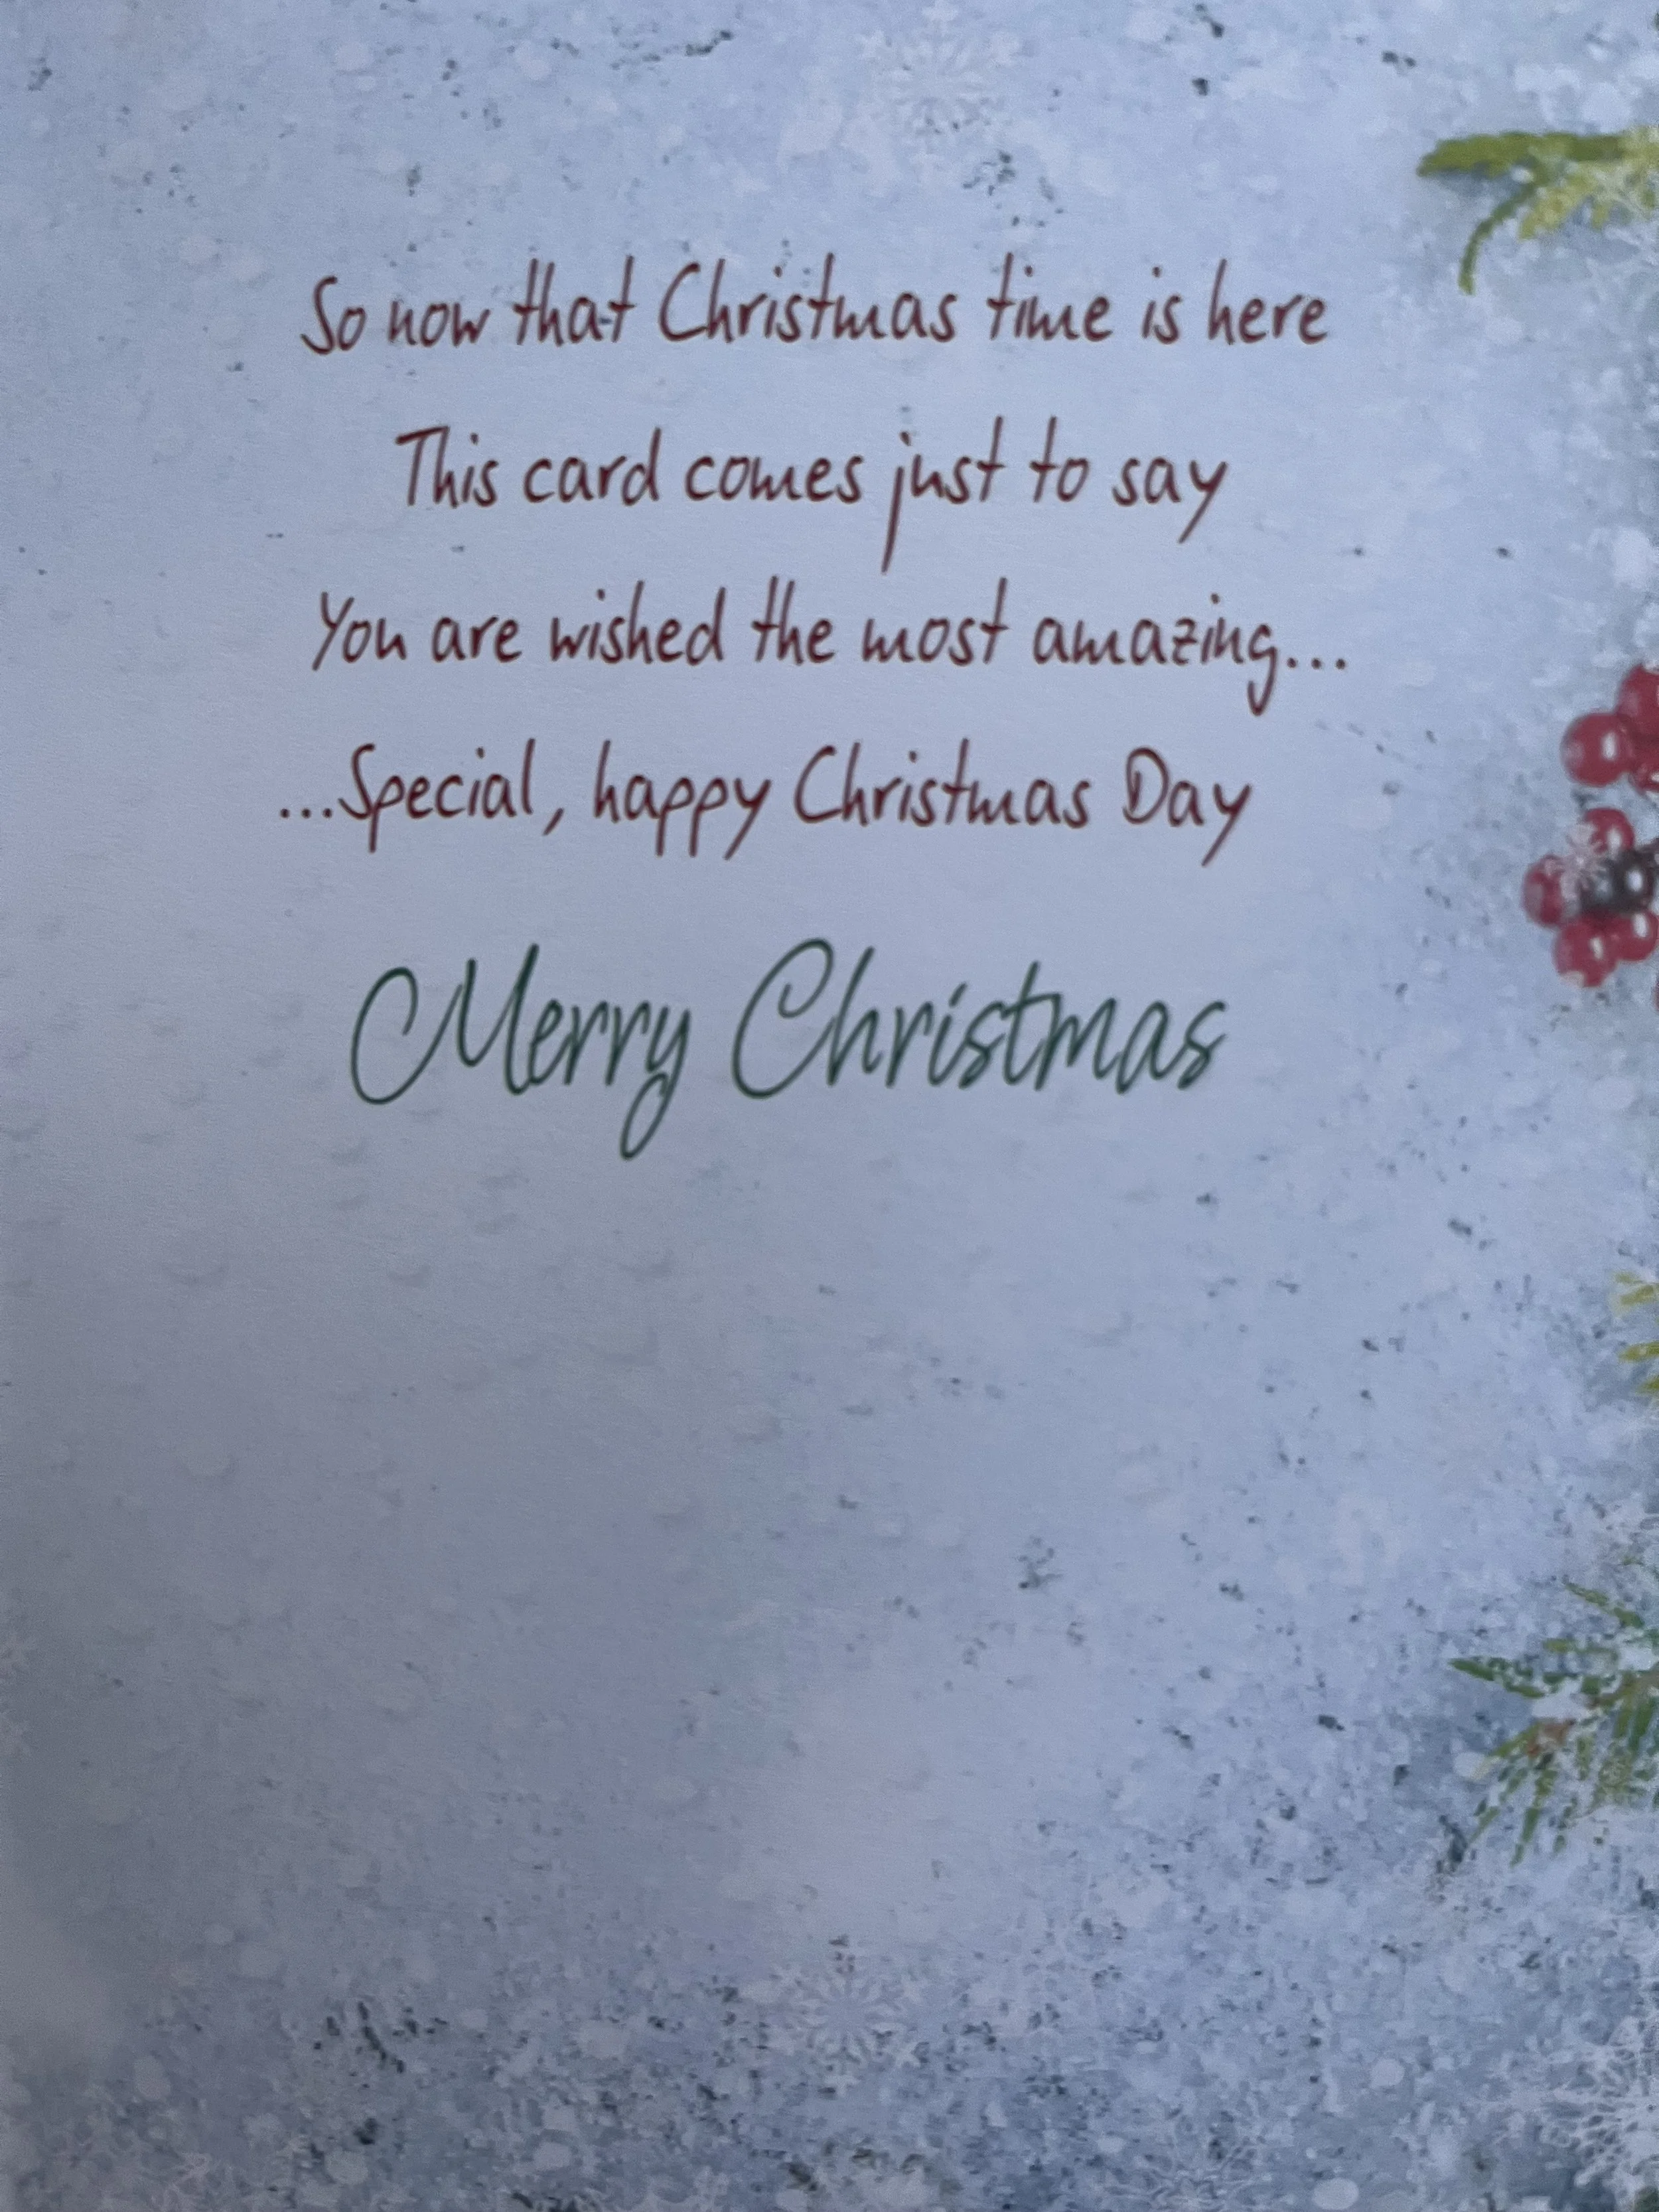 So now that Christmas time is here
This card comes just to say
You are wished the most amazing...
...Special, happy Christmas Day
Merry Christmas